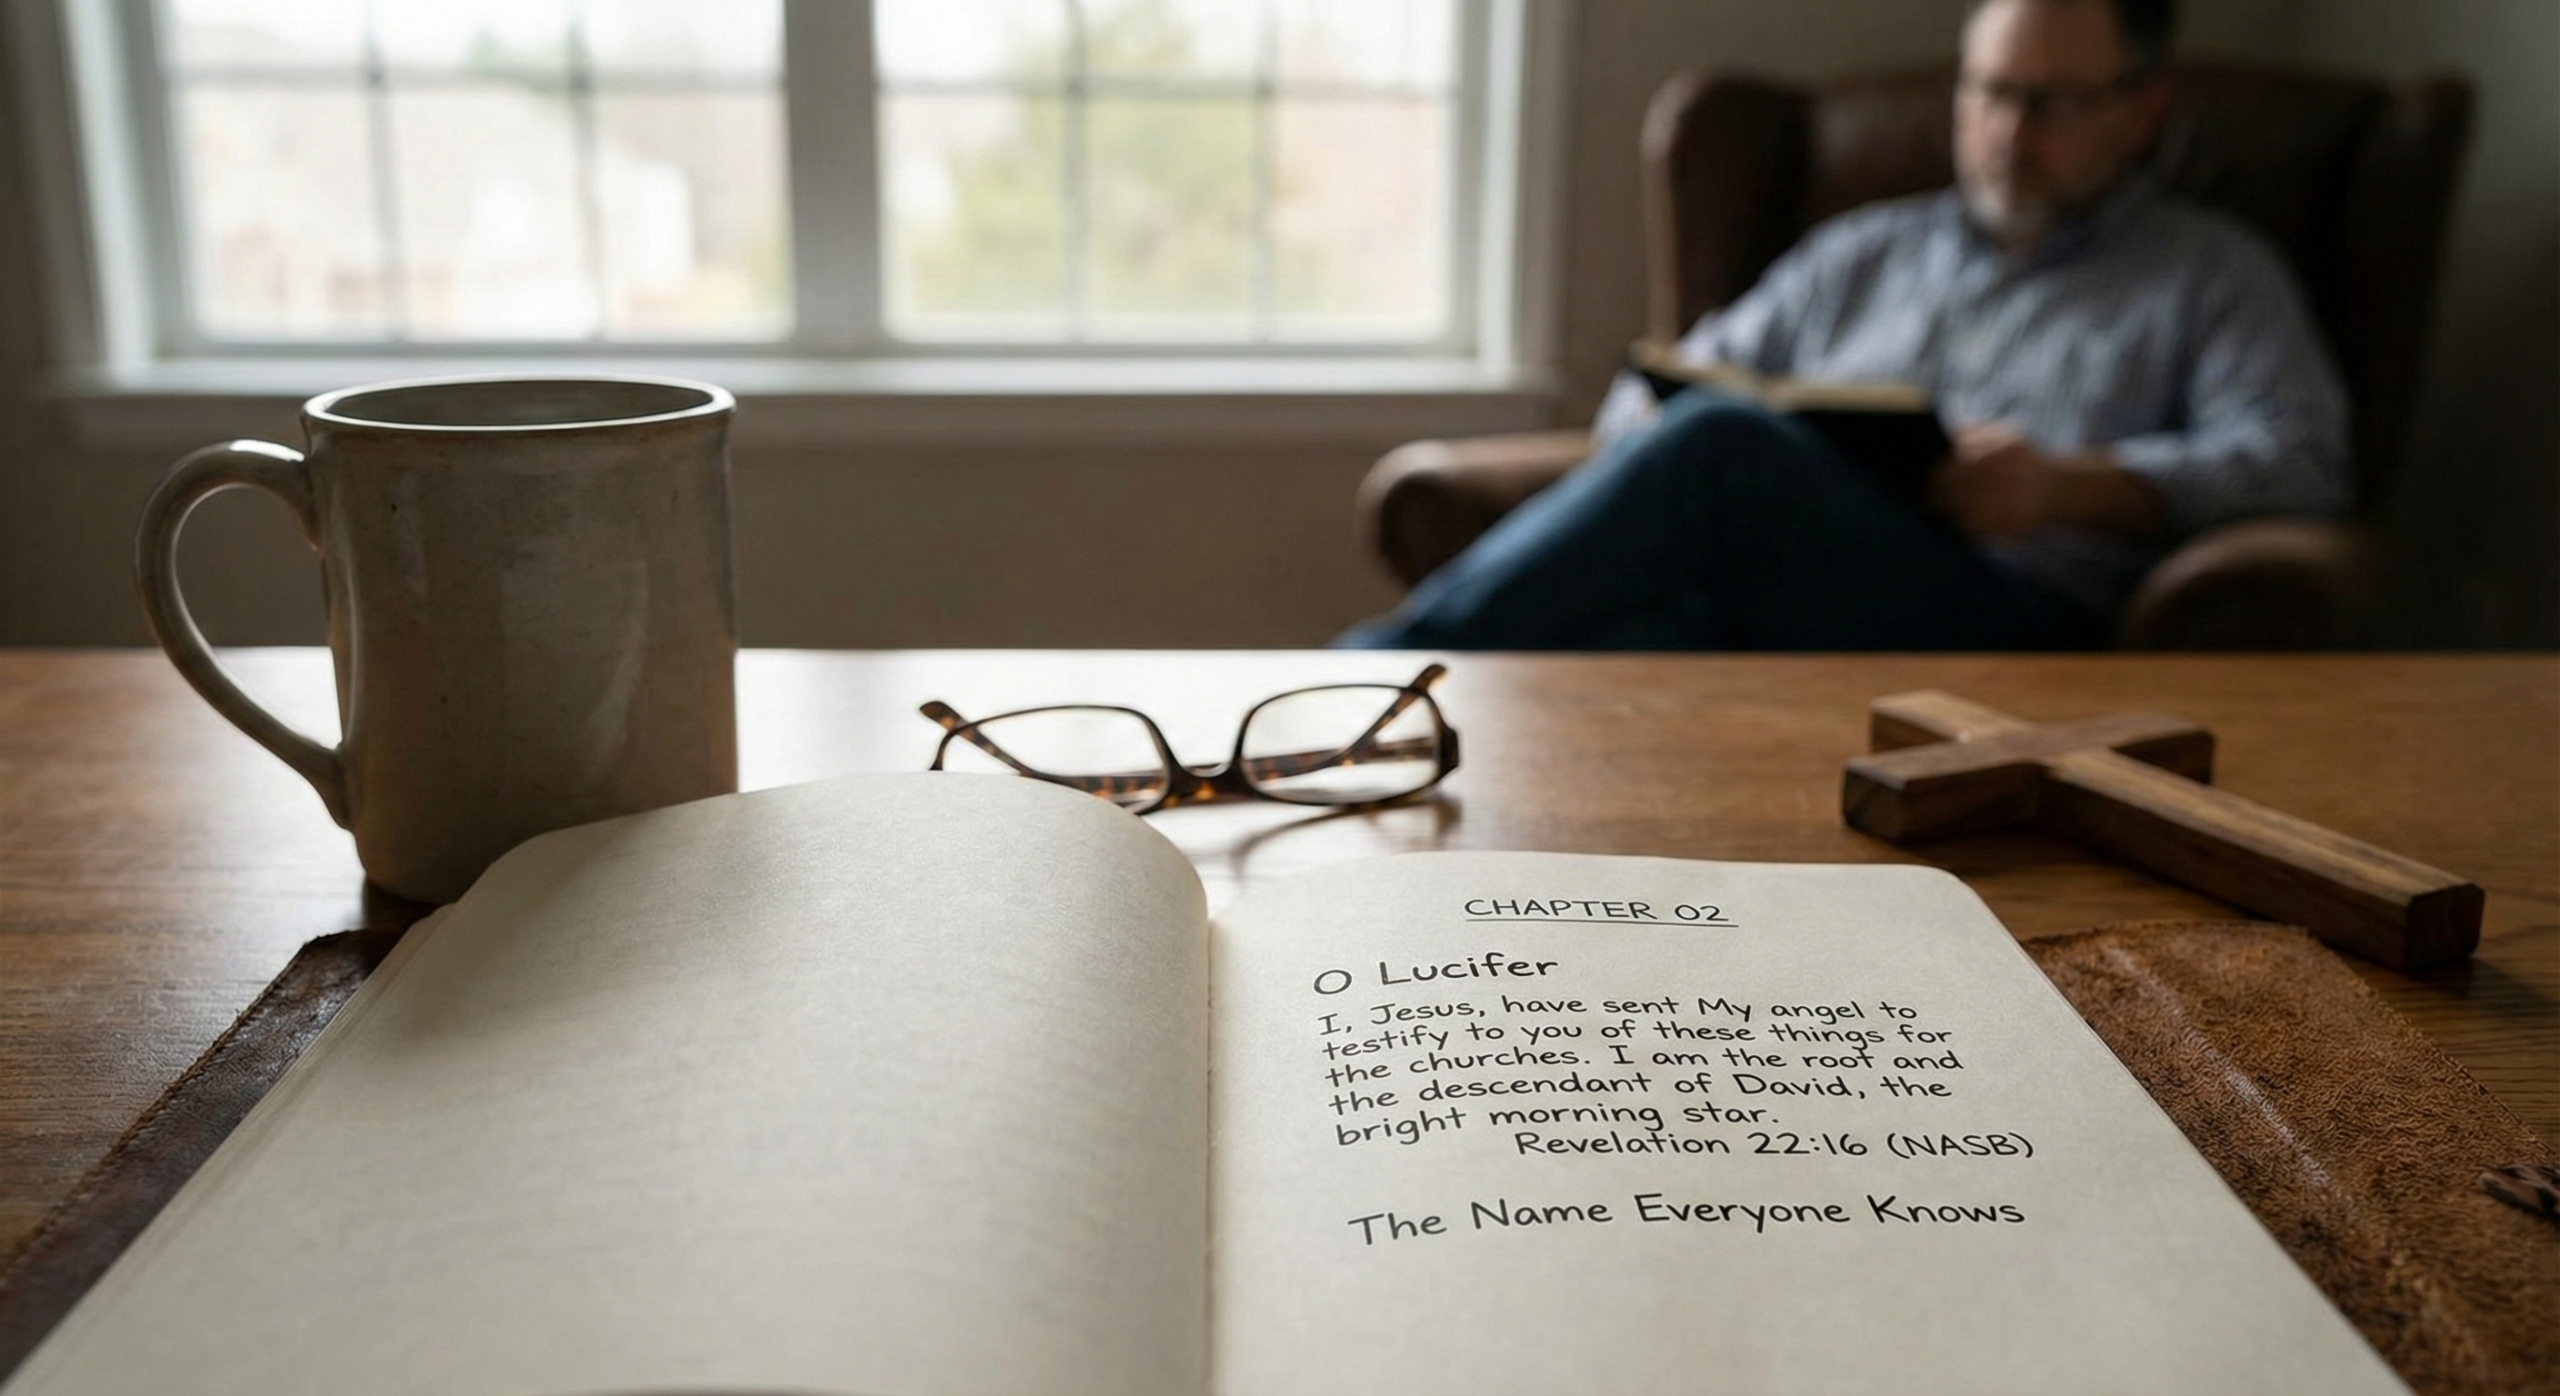 CHAPTER 02
O Lucifer
I, Jesus, have sent My angel to
testify to you of these things for
the churches. I am the root and
the descendant of David, the
bright morning star.
Revelation 22:16 (NASB)
The Name Everyone Knows